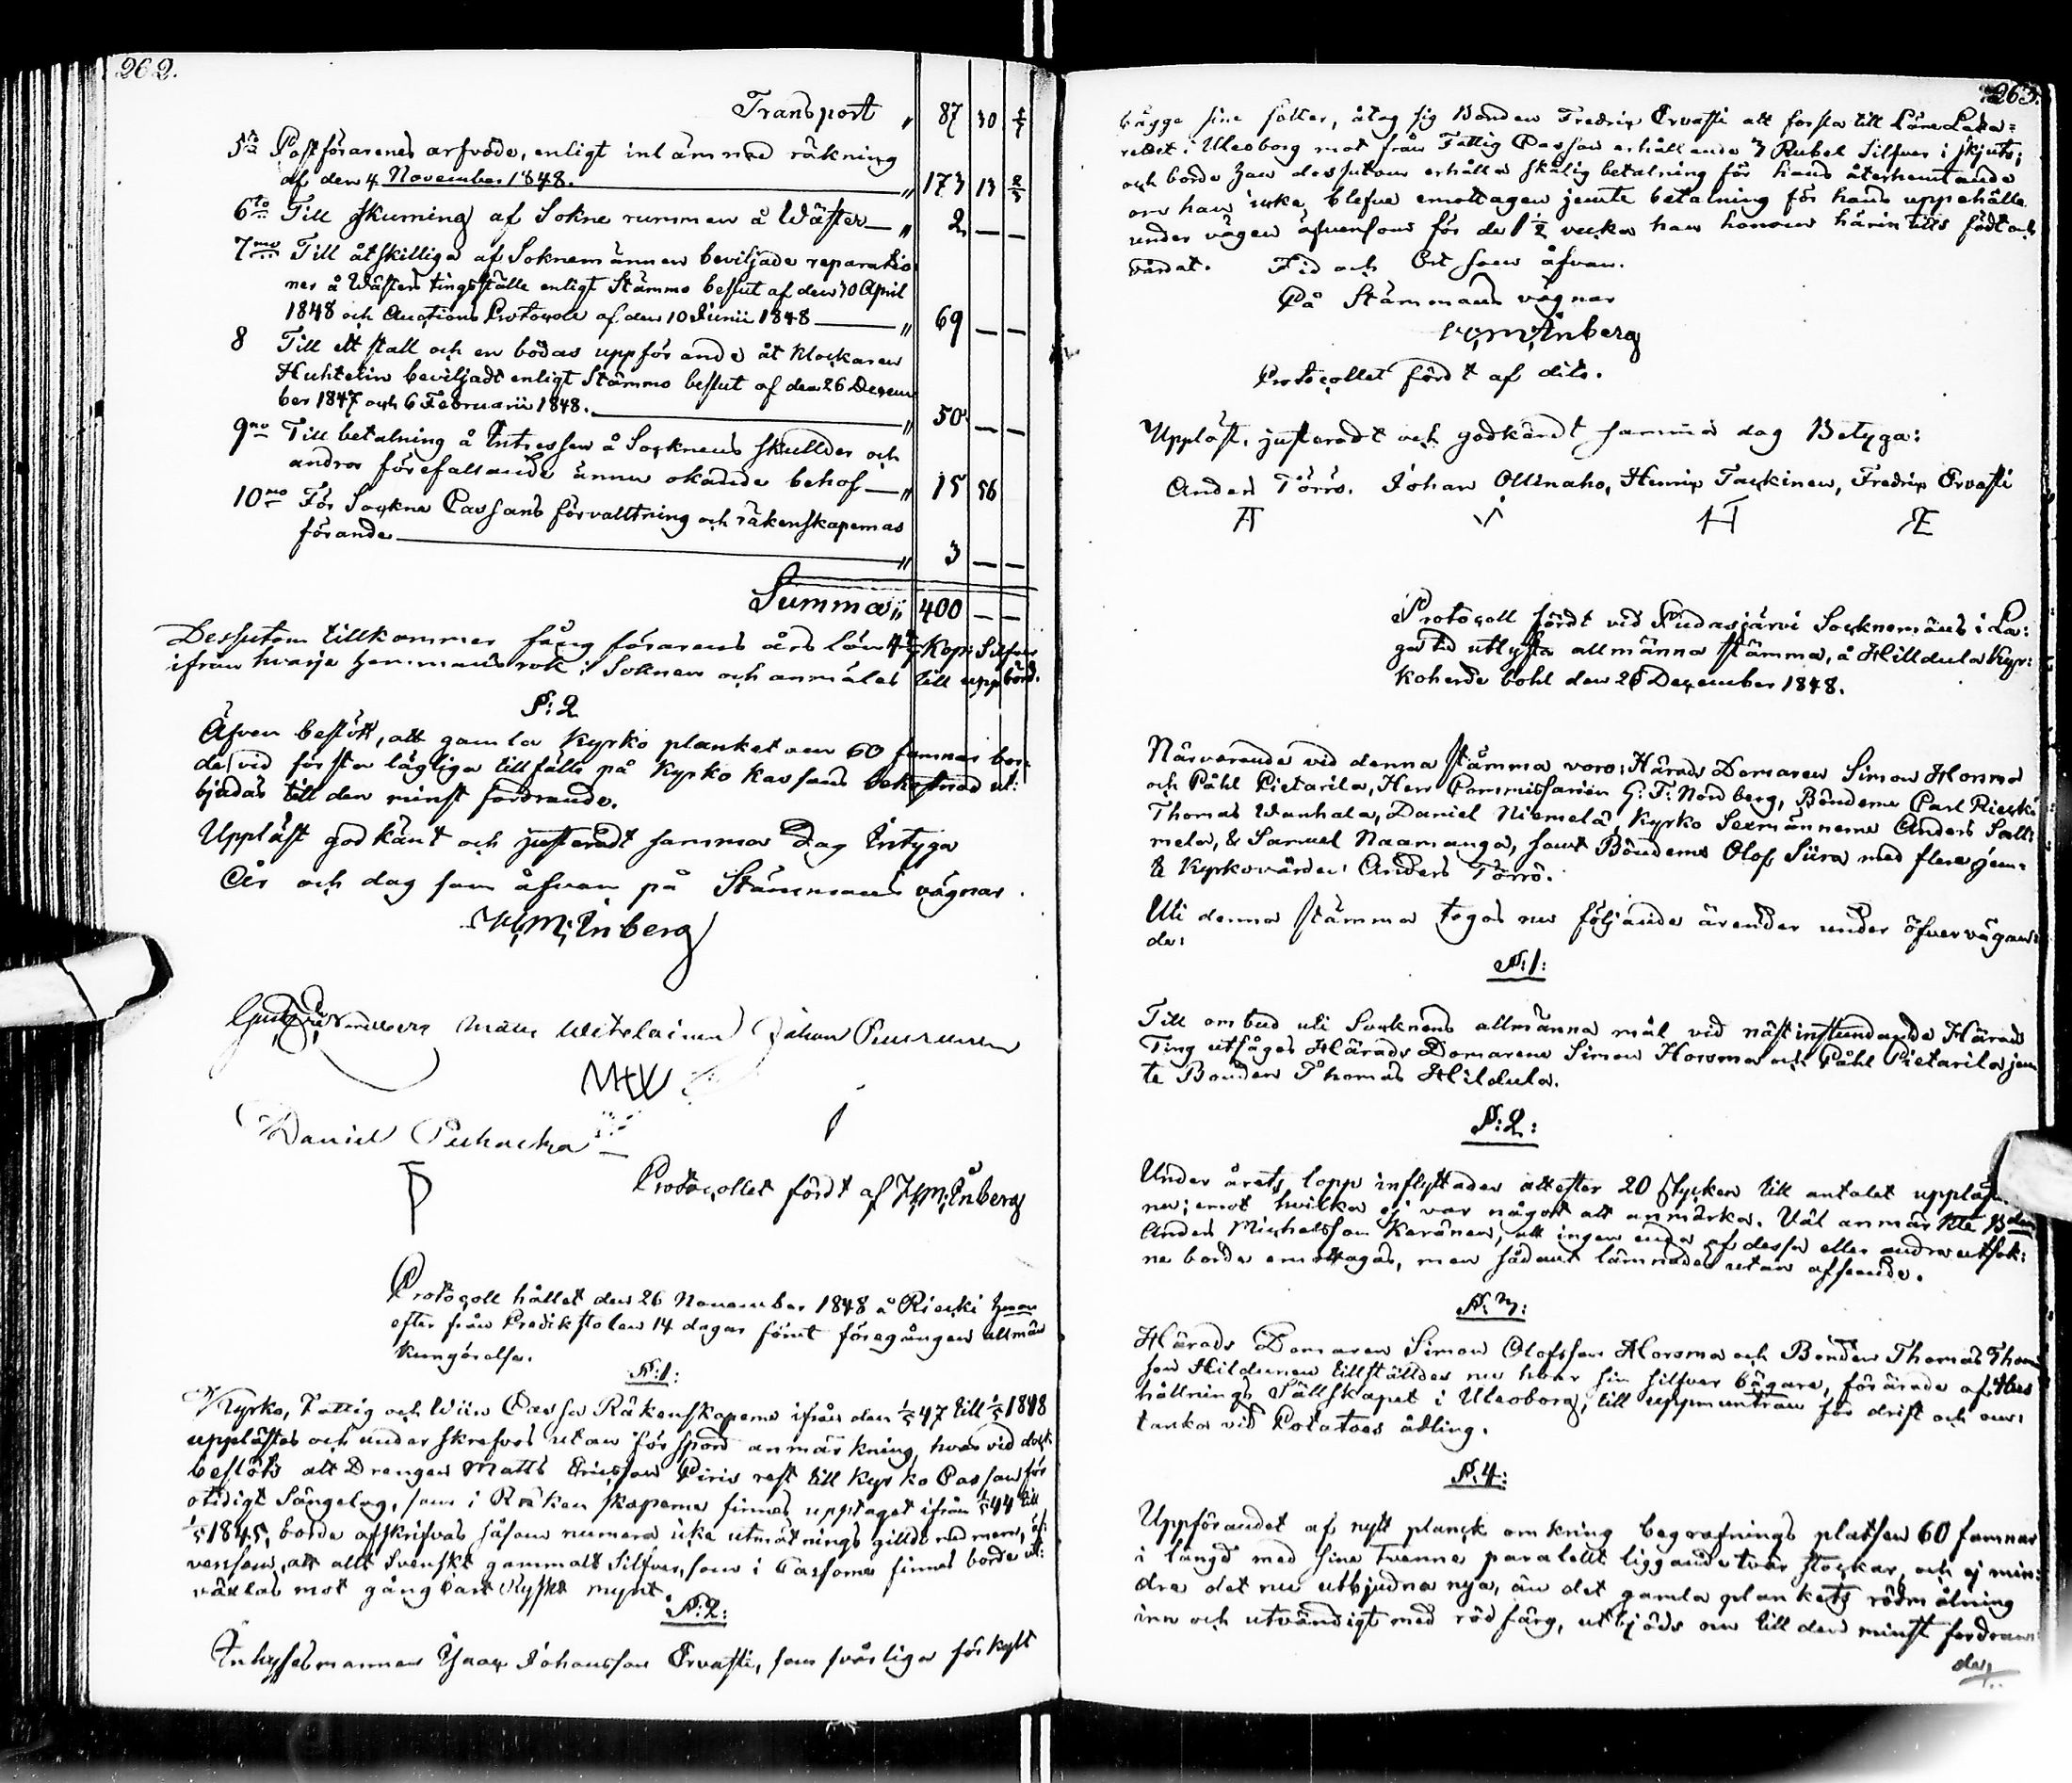 262.
Transport " 87 30 4/7
5to Postförarenes arfvode, enligt inlämnad räkning
af den 4 November 1848. " 173 13 2/7
6to Till skurning af Sokne rummen å Wäster — " 2 — —
7mo Till åtskilliga af Soknemännen beviljade reparatio
ner å Wästers tingsställe enligt Stämmo beslut af den 30 April
1848 och Auctions Protocoll af den 10 Junii 1848 — " 69 — —
8 Till ett stall och en bodas uppförande åt Klockaren
Huhtelin beviljadt enligt Stämmo beslut af den 26 Decem
ber 1847 och 6 Februarii 1848. " 50 — —
9no Till betalning å Intressen å Socknens skullder och
andra förefallande ännu okände behof — " 15 56
10mo För Sockne Cassans förvalltning och räkenskapernas
förande " 3 — —
Summa " 400 — —
Dessutom tillkommer fång förarens års lön Kop: Silfver
ifrån hvarje hemmans rök i Soknen och anmäles till uppbörd.
§: 2
Äfven beslöts, att gamla Kyrko planket om 60 famnar bor:
de vid första lägliga tillfälle på Kyrko kassans bekostnad ut:
bjudas till den minst fordrande.
Uppläst godkänt och justeradt samma Dag Intyga
År och dag som åfvan på Stämmans vägnar.
H: M: Enberg
Nordberg Matts Daniel Johan
MHW
Daniel
P
Protocollet fördt af H: M: Enberg
Protocoll hållet den 26 November 1848 å Riecki
efter från Predikstolen 14 dagar förut föregången allmän
Kungörelse.
§: 1:
Kyrko, Fattig och Wiin Cassa Räkenskaperna ifrån den 1/5 47 till 1/5 1848
upplästes och underskrefvos utan förspord anmärkning, hvarvid dock
beslöts att Drengen Matts Ericsson Piris rest till Kyrko Cassan för
otidigt Sängelag, som i Räkenskaperna finnes upptaget ifrån 1/5 44 till
1/5 1845, borde afskrifvas såsom numera icke utmätnings gilldt med mera, äf:
vensom, att allt Svenskt gammalt Silfver, som i Cassorna finnes borde ut:
växlas mot gångbart Ryskt mynt.
§: 2:
Inhysesmannen Isaac Johansson Ervasti, som svårliga förkylt
263.
bägge sine fötter, åtog sig Bonden Fredric Ervasti att forsla till Läne Laza=
rettet i Uleoborg mot från Fattig Cassan erhållande 3 Rubel Silfver i skjuts;
och borde han dessutom erhålla skälig betalning för hans återhemtande
om han icke blefve emottagen jemte betalning för hans uppehälle
under vägen äfvensom för de 1 1/2 vecka han honom härintills födt och
vårdat. Tid och Ort som åfvan.
På Stämmans vägnar
H: M: Enberg
Protocollet fördt af dito.
Uppläst, justeradt och godkändt samma dag Betyga:
Anders Törrö. Johan Ollinaho, Henric Tackinen, Fredric Ervasti
Protocoll fördt vid Pudasjärvi Socknemäns i La:
ga tid utlysta allmänna stämma, å Hilldula Kyr:
koherde bohl den 26 December 1848.
Närvarande vid denna stämma voro: Härads Domaren Simon Horsma
och Påhl Pietarila, Herr Commissarien G: F: Nordberg, Bönderne Carl Riecki
Thomas Wanhala, Daniel Niemelä, Kyrko Sexmännerne Anders Salli
mela, & Samuel Naamanga, samt Bönderne Olof Siira med flere jem:
te Kyrkovärden Anders Törrö.
Uti denna stämma togos nu följande ärender under öfvervägan:
de:
§: 1:
Till ombud uti Socknens allmänna mål vid näst instundande Härads
Ting utsågos Härads Domarene Simon Horsma och Påhl Pietarila jem
te Bonden Thomas Hildula.
§: 2:
Under årets lopp inflyttades attester 20 stycken till antalet
ne; emot hvilka ej var något att anmärka. Väl anmärkte Bden
Anders Michelsson Keränen, att ingen enda af dessa eller andra utsok:
ne borde emottagas, men sådant lämnades utan afseende.
§: 3:
Härads Domaren Simon Olofsson Horsma och Bonden Thomas Thom
son Hildunen tillställdes nu hvar sin silfver bägare, förärade af Hus
hållnings Sällskapet i Uleoborg, till uppmuntran för drift och om:
tanka vid Potatoes odling.
§: 4:
Uppförandet af nytt planck omkring begrafnings platsen 60 famnar
i längd med sine tvenne paralellt liggande tvär stockar, och ej min:
dre det nu utbjudna nya, än det gamla plankets rödmålning
inn och utvändigt med röd färg, utbjöds nu till den minst fordran:
de,